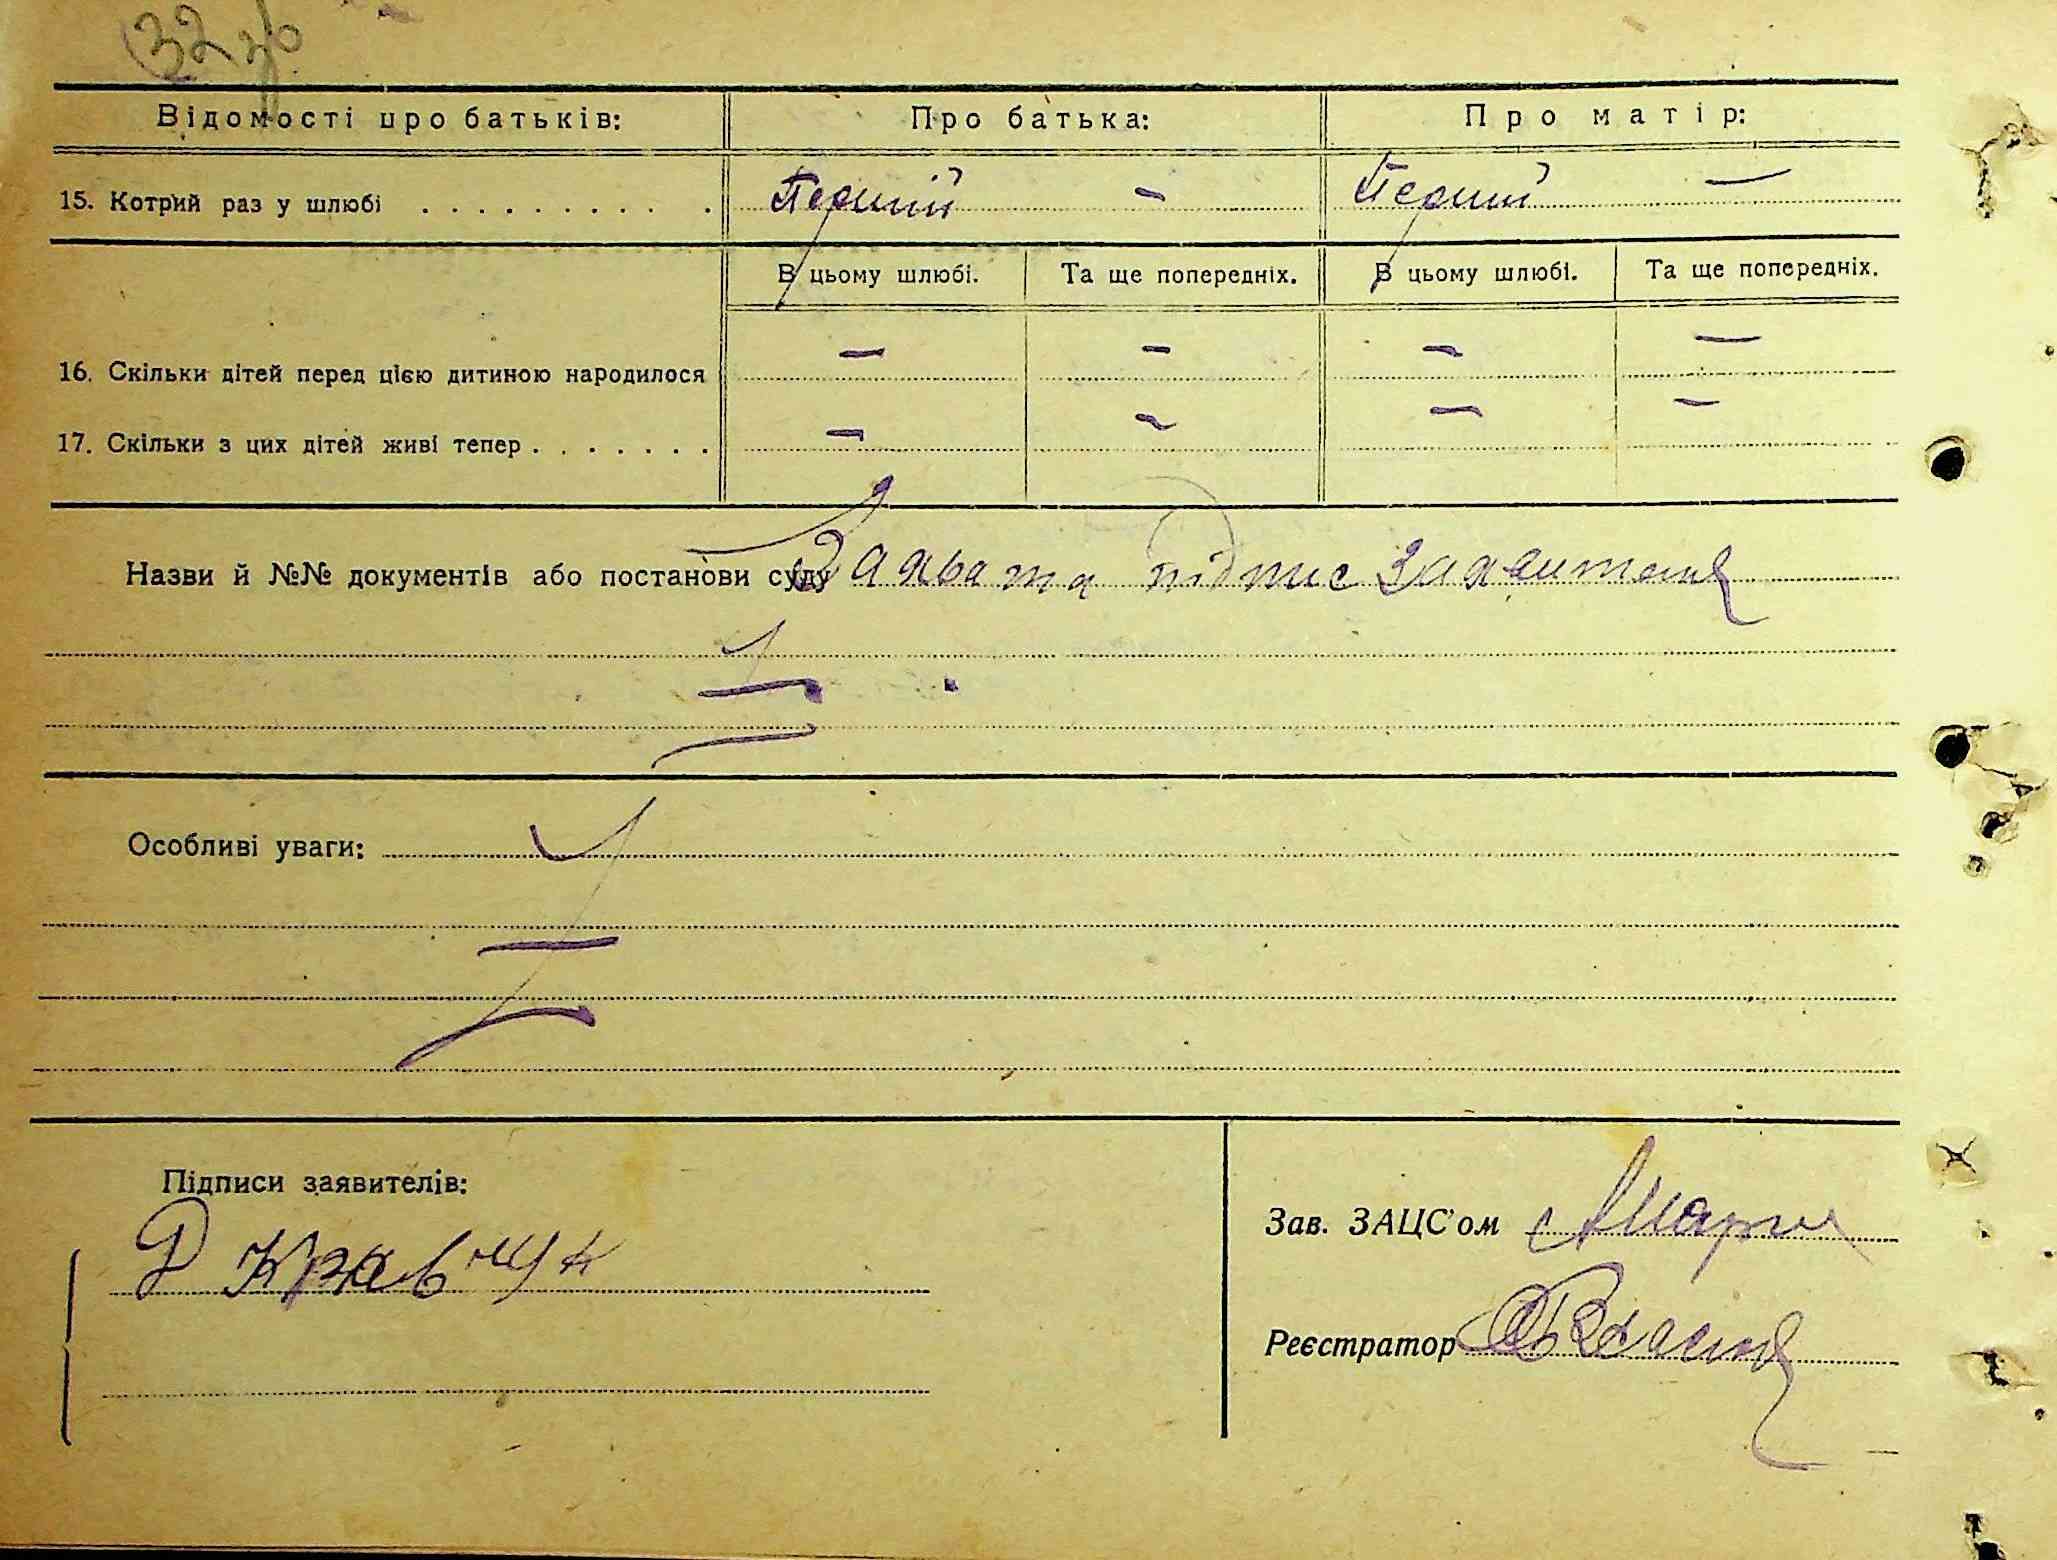 32 зв
Відомості про батьків: Про батька: Про матір:
15. Котрий раз у шлюбі . . . . . . . . . . . Перший - Перший —
В цьому шлюбі. Та ще попередніх. В цьому шлюбі. Та ще попередніх.
16. Скільки дітей перед цією дитиною народилося — - — —
17. Скільки з цих дітей живі тепер . . . . . . . — - — —
Назви й №№ документів або постанови суду Заява та підпис заявителя
Особливі уваги:
Підписи заявителів:
Зав. ЗАЦС'ом
Д Кравчук
Реєстратор